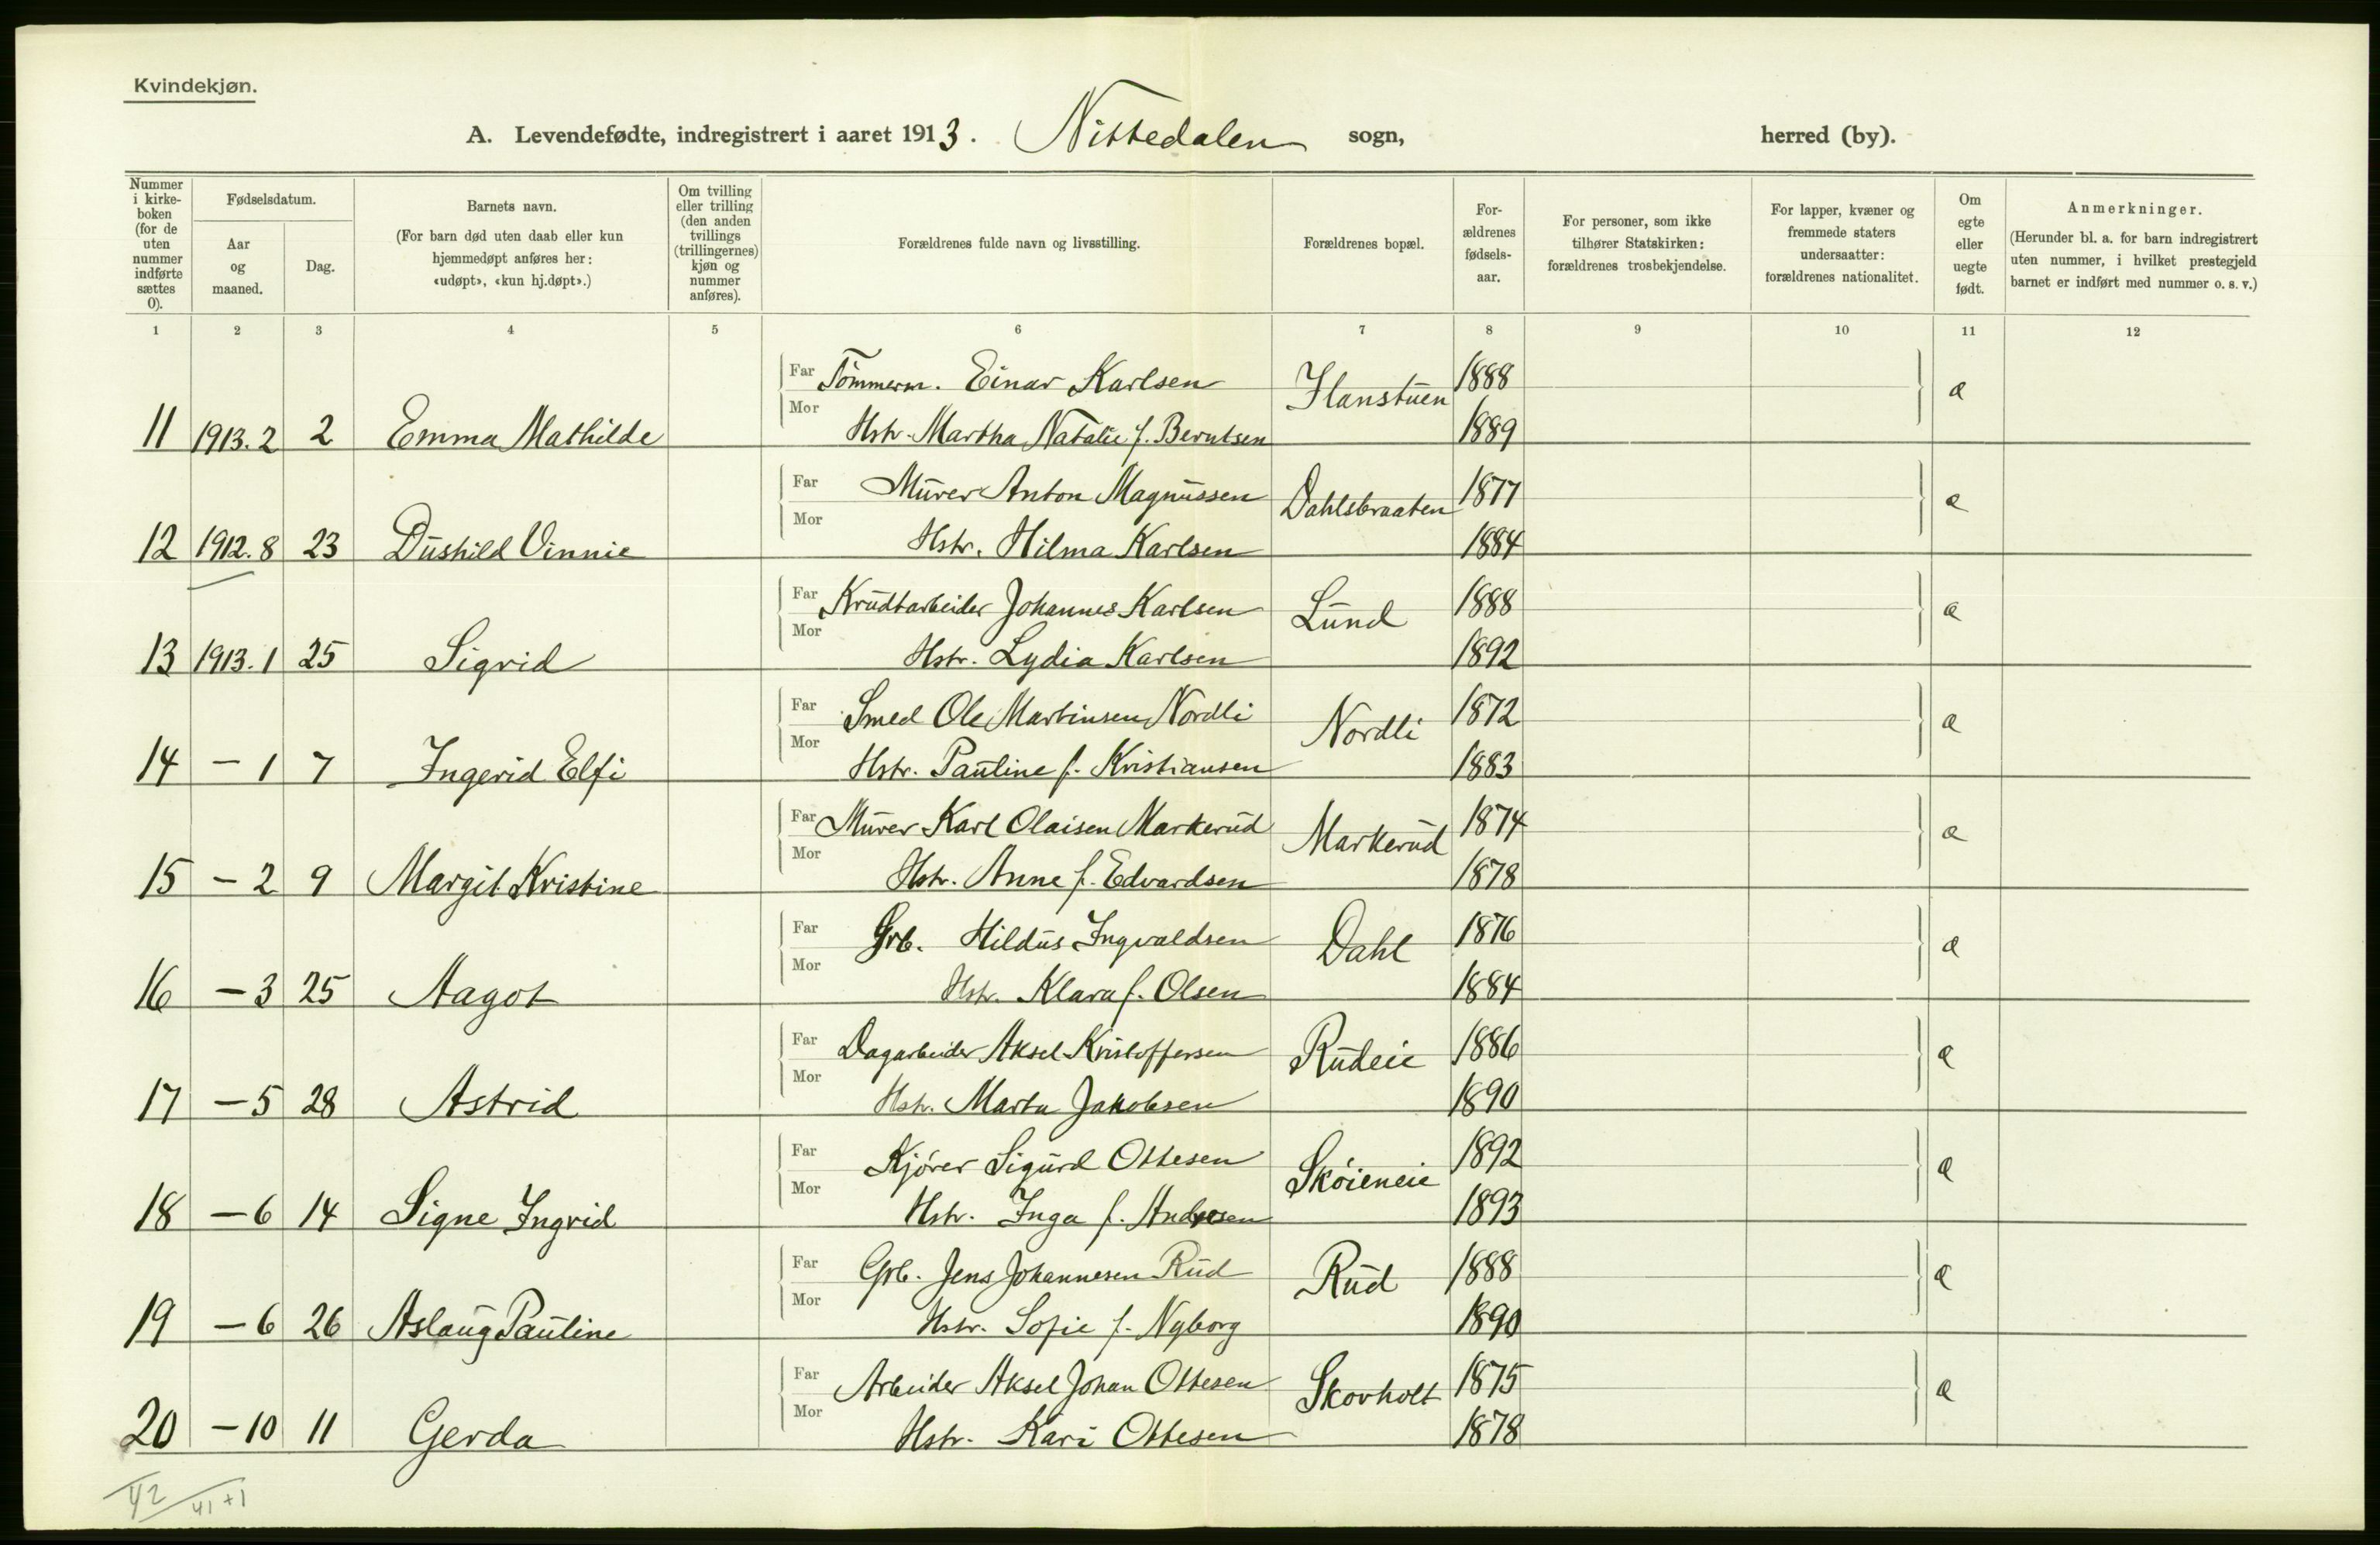 Kvindekjøn.
A. Levendefødte, indregistrert i aaret 1913. Nittedalen sogn, herred (by).
Nummer i kirke-boken (for de uten nummer indførte sættes 0).
Fødselsdatum.
Aar og maaned.
Dag.
Barnets navn.
(For barn død uten daab eller kun hjemmedøpt anføres her: «udøpt», «kun hj.døpt».)
Om tvilling eller trilling (den anden tvillings (trillingernes) kjøn og nummer anføres).
Forældrenes fulde navn og livsstilling.
Forældrenes bopæl.
For-ældrenes fødsels-aar.
For personer, som ikke tilhører Statskirken: forældrenes trosbekjendelse.
For lapper, kvæner og fremmede staters undersaatter: forældrenes nationalitet.
Om egte eller uegte født.
Anmerkninger.
(Herunder bl. a. for barn indregistrert uten nummer, i hvilket prestegjeld barnet er indført med nummer o. s. v.)
1 2 3 4 5 6 7 8 9 10 11 12
Far Tömmerm. Einar Karlsen Hanstuen 1888 a
11 1913.2 2 Emma Mathilde Mor Hstr. Martha Natalie f. Berntsen 1889
Far Murer Anton Magnussen Dahlsbraaten 1877 a
12 1912.8 23 Dushild Vinnie Mor Hstr. Hilma Karlsen 1884
Far Krudtarbeider Johannes Karlsen Lund 1888 a
13 1913.1 25 Sigrid Mor Hstr. Lydia Karlsen 1892
Far Smed Ole Martinsen Nordli Nordli 1872 a
14 – 1 7 Ingerid Elfi Mor Hstr. Pauline f. Kristiansen 1883
Far Murer Karl Olaisen Markerud Markerud 1874 a
15 – 2 9 Margit Kristine Mor Hstr. Anne f. Edvardsen 1878
Far Grb. Hildus Ingvaldsen Dahl 1876 a
16 – 3 25 Aagot Mor Hstr. Klara f. Olsen 1884
Far Dagarbeider Aksel Kristoffersen Rudeie 1886 a
17 – 5 28 Astrid Mor Hstr. Marta Jakobsen 1890
Far Kjörer Sigurd Ottesen Sköieneie 1892 a
18 – 6 14 Signe Ingrid Mor Hstr. Inga f. Andresen 1893
Far Grb. Jens Johannesen Rud Rud 1888 a
19 – 6 26 Aslaug Pauline Mor Hstr. Sofie f. Nyborg 1890
Far Arbeider Aksel Johan Ottesen Skovholt 1875 a
20 – 10 11 Gerda Mor Hstr. Kari Ottesen 1878
42 41+1